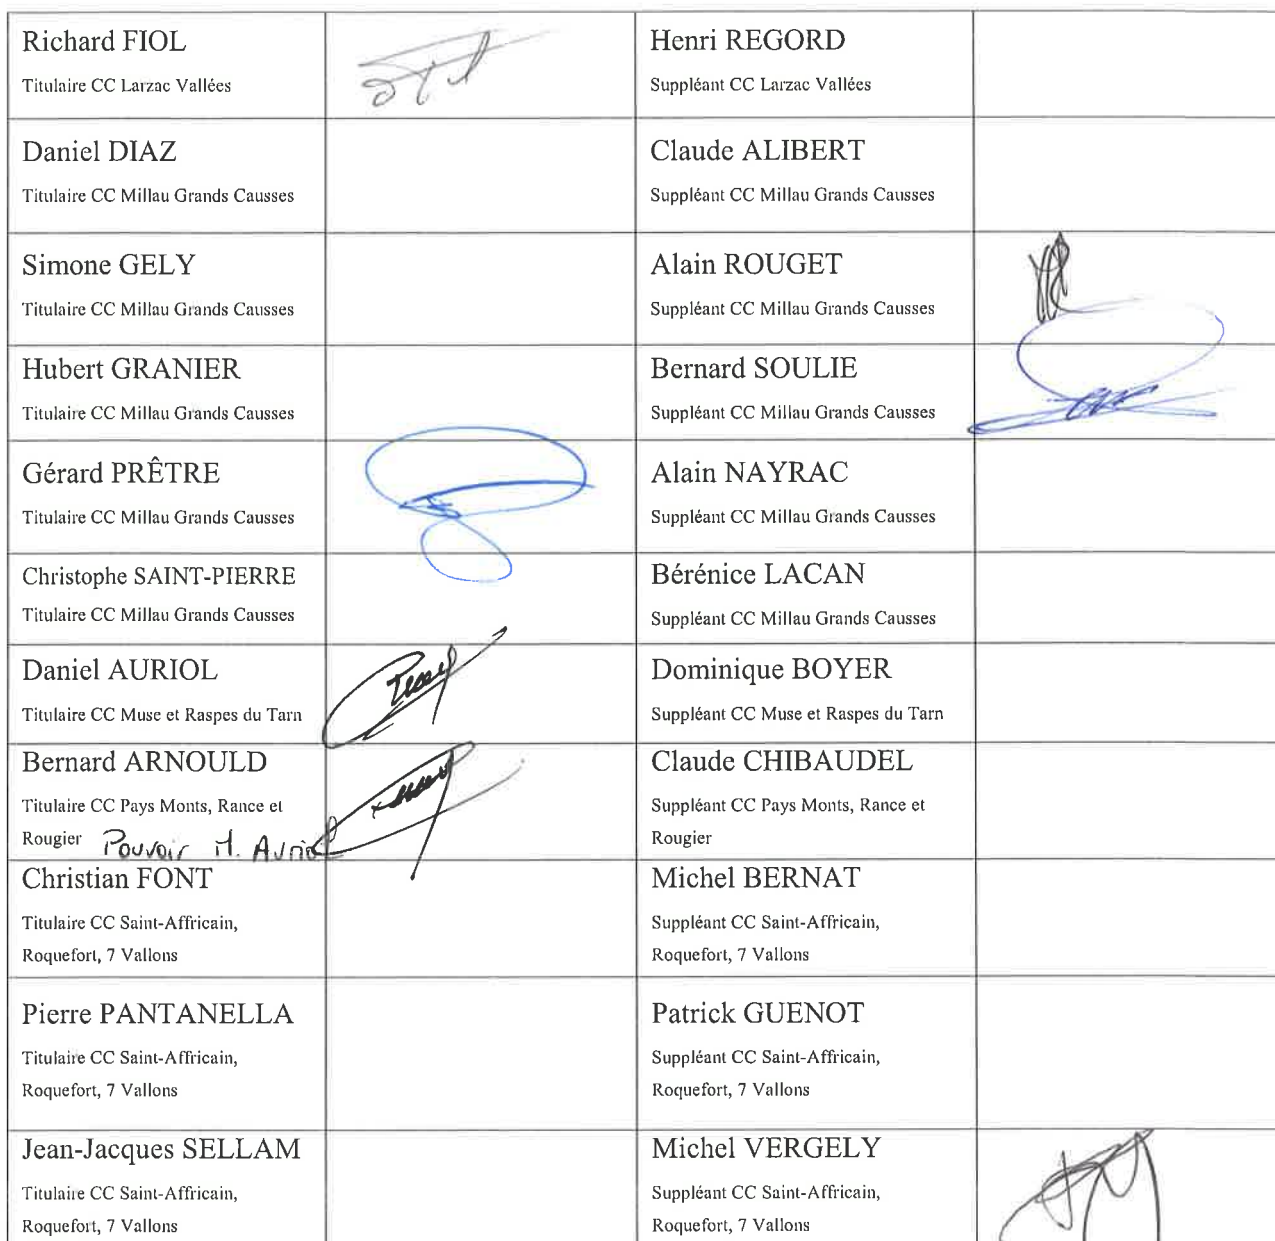 Richard FIOL
Titulaire CC Larzac Vallées
Henri REGORD
Suppléant CC Larzac Vallées
Daniel DIAZ
Titulaire CC Millau Grands Causses
Claude ALIBERT
Suppléant CC Millau Grands Causses
Simone GELY
Titulaire CC Millau Grands Causses
Alain ROUGET
Suppléant CC Millau Grands Causses
Hubert GRANIER
Titulaire CC Millau Grands Causses
Bernard SOULIE
Suppléant CC Millau Grands Causses
Gérard PRÊTRE
Titulaire CC Millau Grands Causses
Alain NAYRAC
Suppléant CC Millau Grands Causses
Christophe SAINT-PIERRE
Titulaire CC Millau Grands Causses
Bérénice LACAN
Suppléant CC Millau Grands Causses
Daniel AURIOL
Titulaire CC Muse et Raspes du Tarn
Dominique BOYER
Suppléant CC Muse et Raspes du Tarn
Bernard ARNOULD
Titulaire CC Pays Monts, Rance et
Rougier Pouvoir M. Auriol
Claude CHIBAUDEL
Suppléant CC Pays Monts, Rance et
Rougier
Christian FONT
Titulaire CC Saint-Affricain,
Roquefort, 7 Vallons
Michel BERNAT
Suppléant CC Saint-Affricain,
Roquefort, 7 Vallons
Pierre PANTANELLA
Titulaire CC Saint-Affricain,
Roquefort, 7 Vallons
Patrick GUENOT
Suppléant CC Saint-Affricain,
Roquefort, 7 Vallons
Jean-Jacques SELLAM
Titulaire CC Saint-Affricain,
Roquefort, 7 Vallons
Michel VERGELY
Suppléant CC Saint-Affricain,
Roquefort, 7 Vallons